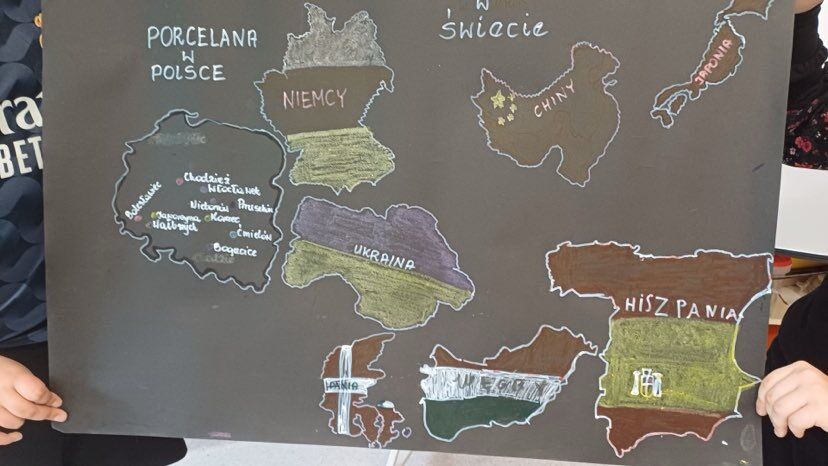 PORCELANA
W
POLSCE
W
ŚWIECIE
NIEMCY
CHINY
JAPONIA
Chodzież
Włocławek
Bolesławiec
Pruszków
Jaworzyna
Wałbrzych
Ćmielów
Bogucice
UKRAINA
HISZPANIA
DANIA
WĘGRY
BET